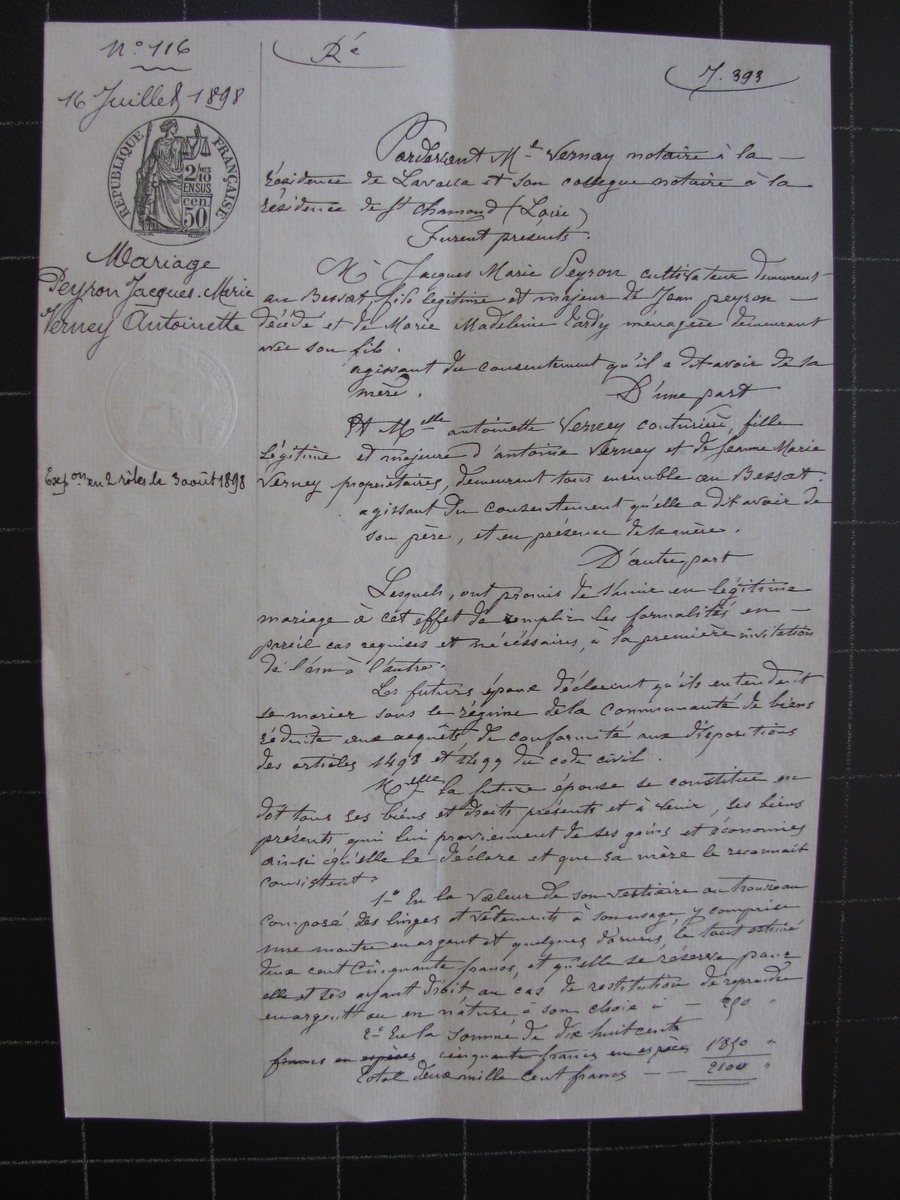 N° 116
16 Juillet 1898
RÉPUBLIQUE FRANÇAISE
2/10 EN SUS
50 cen.
Mariage
Peyron Jacques-Marie
Verney Antoinette
Expon en 2 rôles le 3 août 1898
Ré
J. 393
Pardevant Me Vernay notaire à la
résidence de Lavalla et son collegue notaire à la
résidence de St Chamond (Loire)
Furent présents.
Mr Jacques Marie Peyron cultivateur demeurant
au Bessat, fils légitime et majeur de Jean peyron
décédé et de Marie Madeleine Tardy ménagère demeurant
avec son fils.
agissant du consentement qu'il a dit avoir de sa
mère. D'une part
Et Melle antoinette Verney couturière, fille
légitime et majeure d'antoine Verney et de Jeanne Marie
Verney propriétaires, demeurant tous ensemble au Bessat.
agissant du consentement qu'elle a dit avoir de
son père, et en présence de sa mère.
D'autre part
Lesquels, ont promis de s'unir en légitime
mariage à cet effet de remplir les formalités en
pareil cas requises et nécessaires, a la première invitation
de l'un à l'autre.
Les futurs époux déclarent qu'ils entendent
se marier sous le régime de la communauté de biens
réduite aux acquêts de conformité aux dispositions
des articles 1498 et 1499 du code civil.
Melle la future épouse se constitue en
dot tous ses biens et droits présents et à venir, ses biens
présents qui lui proviennent de ses gains et économies
ainsi qu'elle le déclare et que sa mère le reconnait
consistent:
1° En la valeur de son vestiaire ou trousseau
composé des linges et vêtements à son usage, y comprise
une montre en argent et quelques dorures, le tout estimé
deux cent cinquante francs, et qu'elle se réserve pour
elle et ses ayant droit au cas de restitution de reprendre
en argent ou en nature à son choix ci - 250 "
2° En la somme de dix huit cents
francs en espèces cinquante francs en espèces 1850 "
Total deux mille cent francs - - 2100 "